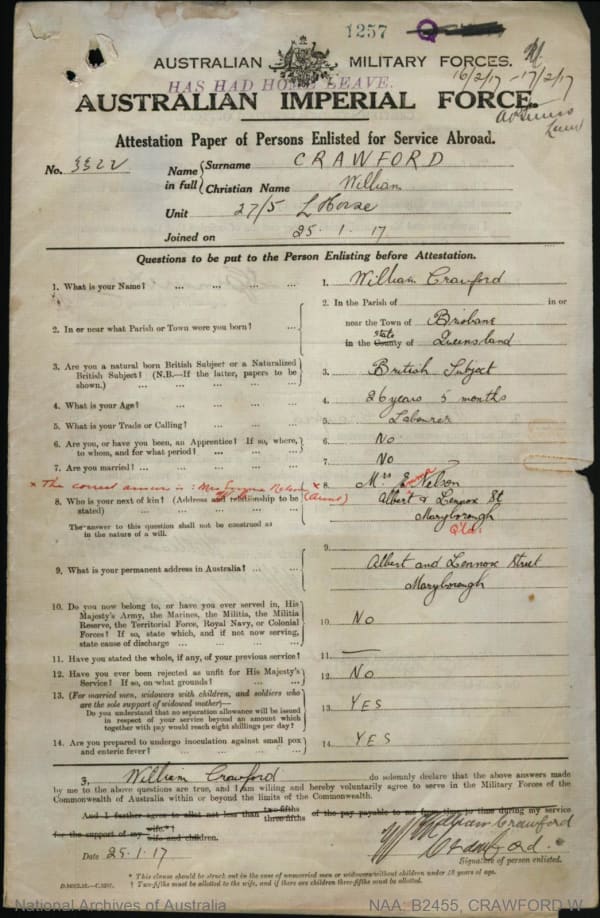 1257 Q
AUSTRALIAN MILITARY FORCES.
16/2/17 - 17/2/17
HAS HAD HOME LEAVE.
AUSTRALIAN IMPERIAL FORCE.
Attestation Paper of Persons Enlisted for Service Abroad.
No. 3322
Name in full
Surname CRAWFORD
Christian Name William
Unit 27/5 L Horse
Joined on 25.1.17
Questions to be put to the Person Enlisting before Attestation.
1. What is your Name? ... ... ... ... 1. William Crawford
2. In or near what Parish or Town were you born? ... 2. In the Parish of in or
near the Town of Brisbane
in the County State of Queensland
3. Are you a natural born British Subject or a Naturalized
British Subject? (N.B.—If the latter, papers to be
shown.) ... ... ... ... 3. British Subject
4. What is your Age? ... ... ... ... 4. 26 years 5 months
5. What is your Trade or Calling? ... ... ... 5. Labourer
6. Are you, or have you been, an Apprentice? If so, where,
to whom, and for what period? ... ... ... 6. No
7. Are you married? ... ... ... ... 7. No
x The correct answer is: Mrs Nelson x (Aunt)
8. Who is your next of kin? (Address and relationship to be
stated) ... ... ... ... 8. Mrs E Nelson
Albert & Lennox St
Maryborough
Q'ld.
The answer to this question shall not be construed as
in the nature of a will.
9. What is your permanent address in Australia? ... ... 9. Albert and Lennox Street
Maryborough
10. Do you now belong to, or have you ever served in, His
Majesty's Army, the Marines, the Militia, the Militia
Reserve, the Territorial Force, Royal Navy, or Colonial
Forces? If so, state which, and if not now serving,
state cause of discharge ... ... ... 10. No
11. Have you stated the whole, if any, of your previous service? 11. —
12. Have you ever been rejected as unfit for His Majesty's
Service? If so, on what grounds? ... ... 12. No
13. (For married men, widowers with children, and soldiers who
are the sole support of widowed mother)—
Do you understand that no separation allowance will be issued
in respect of your service beyond an amount which
together with pay would reach eight shillings per day? 13. YES
14. Are you prepared to undergo inoculation against small pox
and enteric fever? ... ... ... ... 14. YES
I, William Crawford do solemnly declare that the above answers made
by me to the above questions are true, and I am willing and hereby voluntarily agree to serve in the Military Forces of the
Commonwealth of Australia within or beyond the limits of the Commonwealth.
And I further agree to allot not less than two-fifths three-fifths of the pay payable to me from time to time during my service
for the support of my wife.* † wife and children.
William Crawford
Crawford.
Date 25.1.17
Signature of person enlisted.
* This clause should be struck out in the case of unmarried men or widowers without children under 18 years of age.
† Two-fifths must be allotted to the wife, and if there are children three-fifths must be allotted.
National Archives of Australia
NAA: B2455, CRAWFORD W